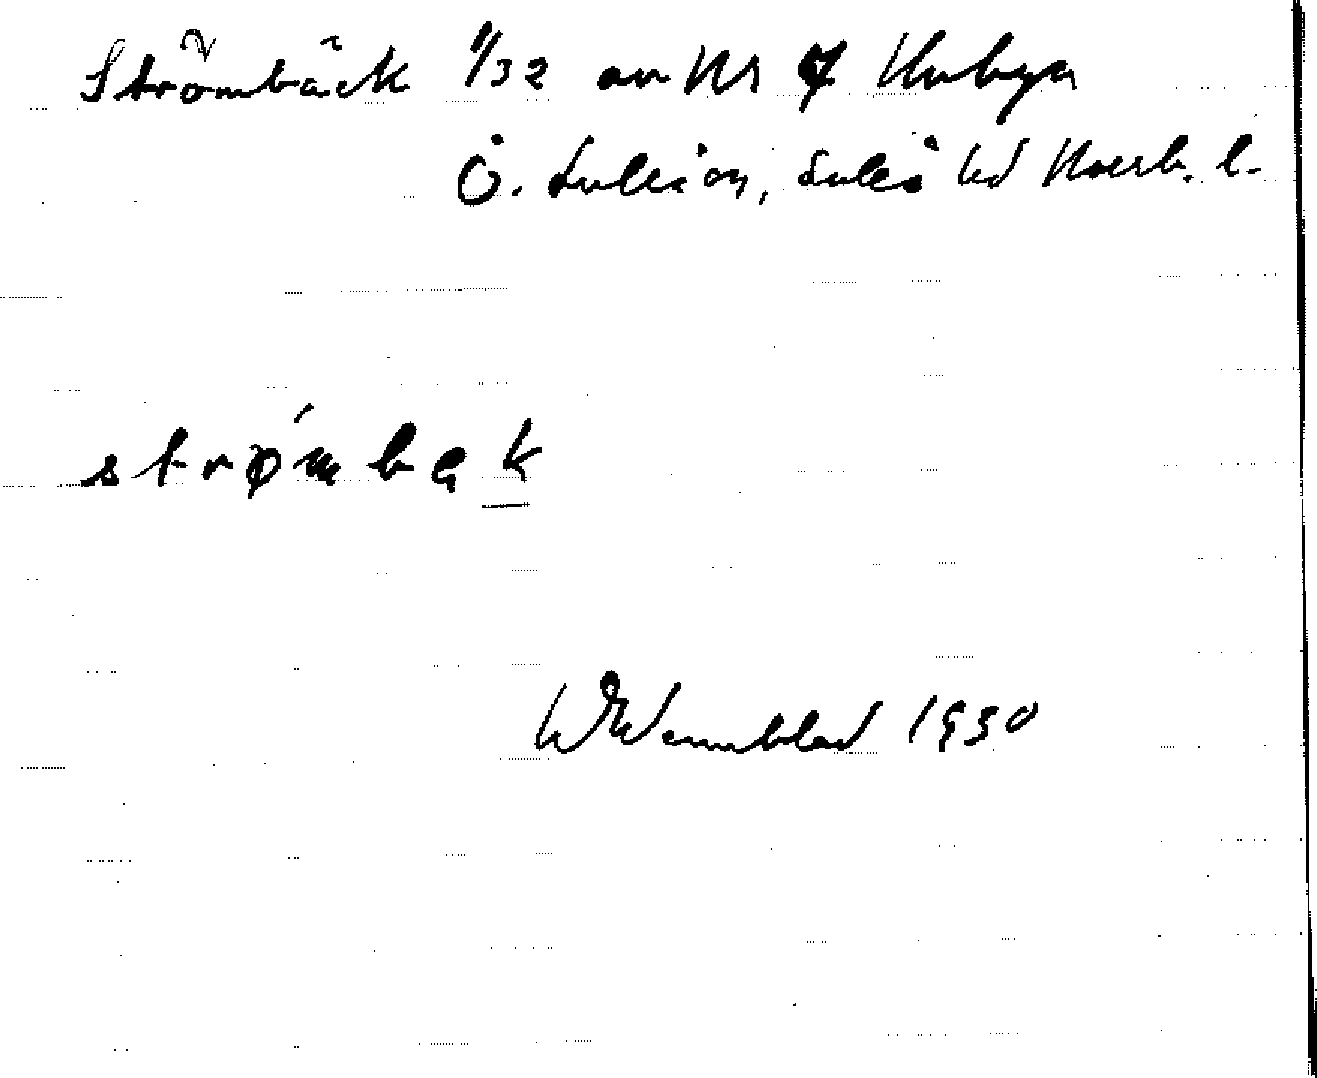 Strömbäck 1/32 av Nr 7 Unbyn
Ö. Luleå sn, Luleå tld Norrb. l.
strǿmbąk
W Wennblad 1930